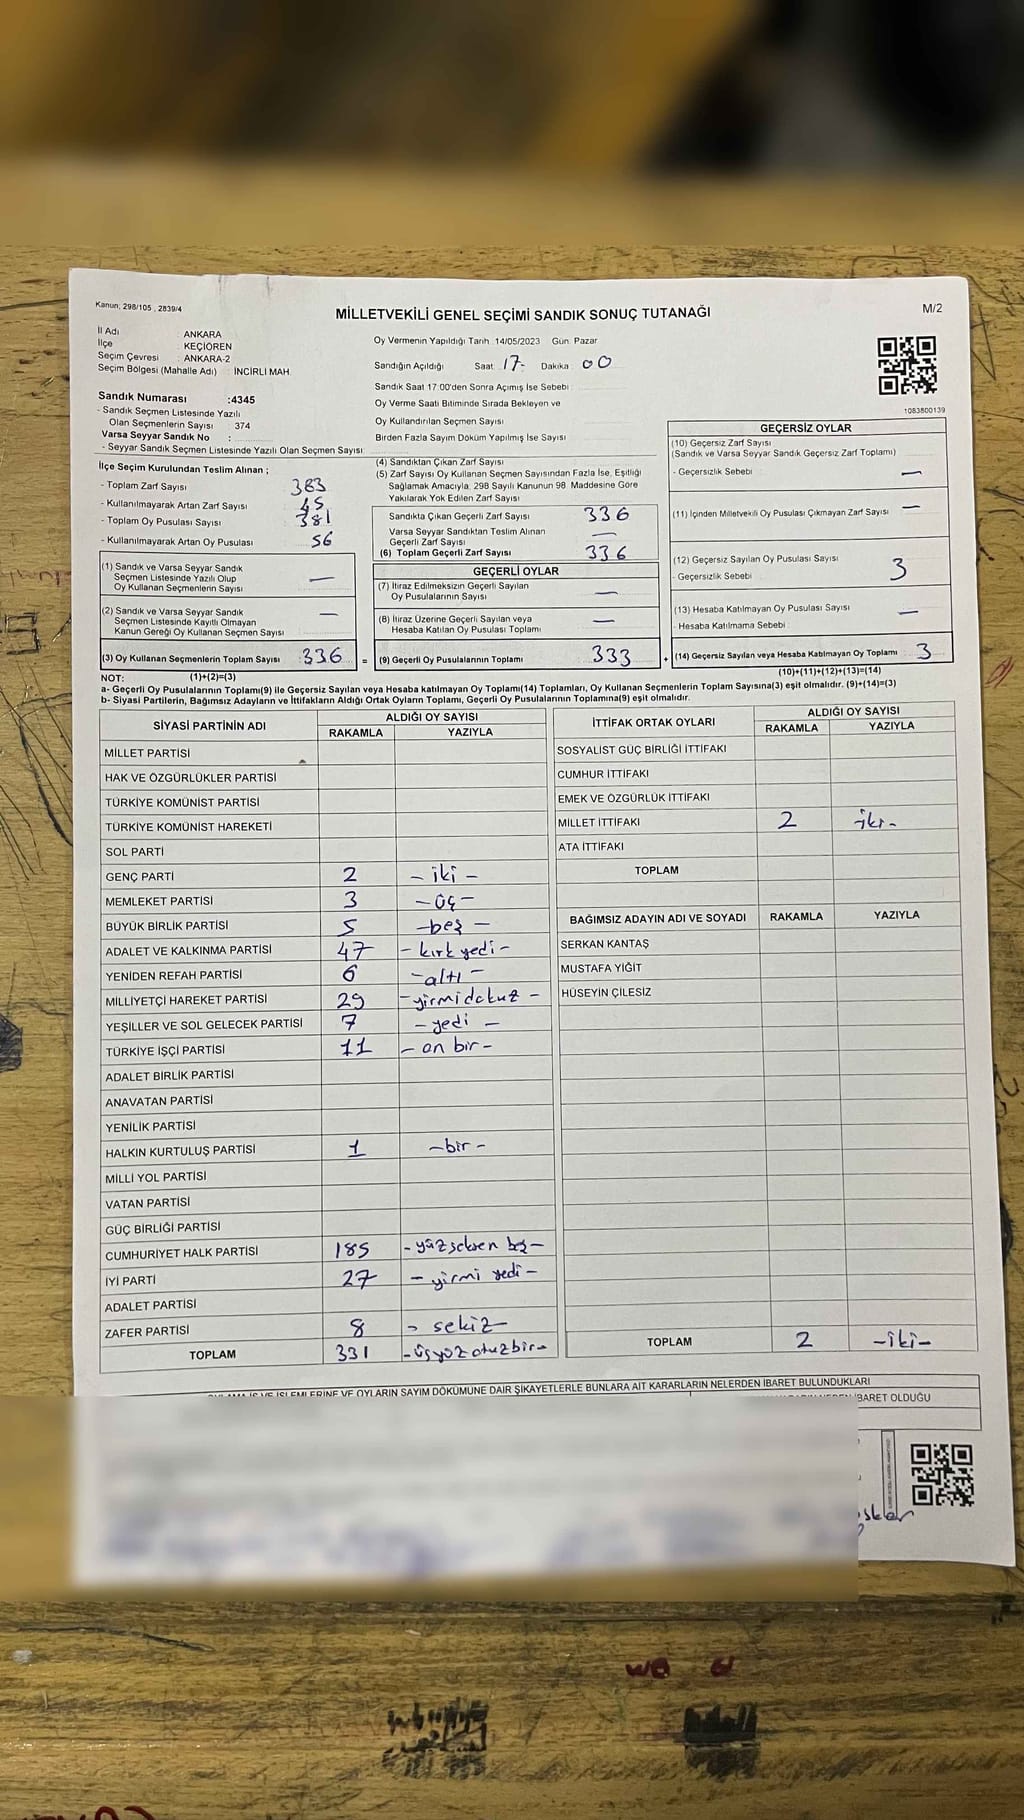 Kanun; 298/105 , 2839/4
MİLLETVEKİLİ GENEL SEÇİMİ SANDIK SONUÇ TUTANAĞI
M/2
İl Adı : ANKARA
İlçe : KEÇİÖREN
Seçim Çevresi : ANKARA-2
Seçim Bölgesi (Mahalle Adı) : İNCİRLİ MAH.
Sandık Numarası :4345
- Sandık Seçmen Listesinde Yazılı
Olan Seçmenlerin Sayısı 374
Varsa Seyyar Sandık No :
- Seyyar Sandık Seçmen Listesinde Yazılı Olan Seçmen Sayısı
Oy Vermenin Yapıldığı Tarih :14/05/2023 Gün: Pazar
Sandığın Açıldığı Saat 17- Dakika 00
Sandık Saat 17:00'den Sonra Açımış İse Sebebi
Oy Verme Saati Bitiminde Sırada Bekleyen ve
Oy Kullandırılan Seçmen Sayısı
Birden Fazla Sayım Döküm Yapılmış İse Sayısı
1083800139
İlçe Seçim Kurulundan Teslim Alınan ;
- Toplam Zarf Sayısı 383
- Kullanılmayarak Artan Zarf Sayısı 45
- Toplam Oy Pusulası Sayısı 381
- Kullanılmayarak Artan Oy Pusulası 56
(1) Sandık ve Varsa Seyyar Sandık
Seçmen Listesinde Yazılı Olup
Oy Kullanan Seçmenlerin Sayısı —
(2) Sandık ve Varsa Seyyar Sandık
Seçmen Listesinde Kayıtlı Olmayan
Kanun Gereği Oy Kullanan Seçmen Sayısı —
(3) Oy Kullanan Seçmenlerin Toplam Sayısı 336 =
(4) Sandıktan Çıkan Zarf Sayısı
(5) Zarf Sayısı Oy Kullanan Seçmen Sayısından Fazla İse, Eşitliği
Sağlamak Amacıyla, 298 Sayılı Kanunun 98. Maddesine Göre
Yakılarak Yok Edilen Zarf Sayısı
Sandıkta Çıkan Geçerli Zarf Sayısı 336
Varsa Seyyar Sandıktan Teslim Alınan
Geçerli Zarf Sayısı —
(6) Toplam Geçerli Zarf Sayısı 336
GEÇERLİ OYLAR
(7) İtiraz Edilmeksizin Geçerli Sayılan
Oy Pusulalarının Sayısı —
(8) İtiraz Üzerine Geçerli Sayılan veya
Hesaba Katılan Oy Pusulası Toplamı —
(9) Geçerli Oy Pusulalarının Toplamı 333 +
GEÇERSİZ OYLAR
(10) Geçersiz Zarf Sayısı
(Sandık ve Varsa Seyyar Sandık Geçersiz Zarf Toplamı)
- Geçersizlik Sebebi : —
(11) İçinden Milletvekili Oy Pusulası Çıkmayan Zarf Sayısı —
(12) Geçersiz Sayılan Oy Pusulası Sayısı 3
- Geçersizlik Sebebi :
(13) Hesaba Katılmayan Oy Pusulası Sayısı —
- Hesaba Katılmama Sebebi :
(14) Geçersiz Sayılan veya Hesaba Katılmayan Oy Toplamı 3
NOT: (1)+(2)=(3)
(10)+(11)+(12)+(13)=(14)
a- Geçerli Oy Pusulalarının Toplamı(9) ile Geçersiz Sayılan veya Hesaba katılmayan Oy Toplamı(14) Toplamları, Oy Kullanan Seçmenlerin Toplam Sayısına(3) eşit olmalıdır. (9)+(14)=(3)
b- Siyasi Partilerin, Bağımsız Adayların ve İttifakların Aldığı Ortak Oyların Toplamı, Geçerli Oy Pusulalarının Toplamına(9) eşit olmalıdır.
SİYASİ PARTİNİN ADI ALDIĞI OY SAYISI
RAKAMLA YAZIYLA
MİLLET PARTİSİ
HAK VE ÖZGÜRLÜKLER PARTİSİ
TÜRKİYE KOMÜNİST PARTİSİ
TÜRKİYE KOMÜNİST HAREKETİ
SOL PARTİ
GENÇ PARTİ 2 - iki -
MEMLEKET PARTİSİ 3 - üç -
BÜYÜK BİRLİK PARTİSİ 5 - beş -
ADALET VE KALKINMA PARTİSİ 47 - kırk yedi -
YENİDEN REFAH PARTİSİ 6 - altı -
MİLLİYETÇİ HAREKET PARTİSİ 29 - yirmidokuz -
YEŞİLLER VE SOL GELECEK PARTİSİ 7 - yedi -
TÜRKİYE İŞÇİ PARTİSİ 11 - on bir -
ADALET BİRLİK PARTİSİ
ANAVATAN PARTİSİ
YENİLİK PARTİSİ
HALKIN KURTULUŞ PARTİSİ 1 - bir -
MİLLİ YOL PARTİSİ
VATAN PARTİSİ
GÜÇ BİRLİĞİ PARTİSİ
CUMHURİYET HALK PARTİSİ 185 - yüzseksen beş -
İYİ PARTİ 27 - yirmi yedi -
ADALET PARTİSİ
ZAFER PARTİSİ 8 - sekiz -
TOPLAM 331 - üçyüzotuzbir -
İTTİFAK ORTAK OYLARI ALDIĞI OY SAYISI
RAKAMLA YAZIYLA
SOSYALIST GÜÇ BİRLİĞİ İTTİFAKI
CUMHUR İTTİFAKI
EMEK VE ÖZGÜRLÜK İTTİFAKI
MİLLET İTTİFAKI 2 - iki -
ATA İTTİFAKI
TOPLAM
BAĞIMSIZ ADAYIN ADI VE SOYADI RAKAMLA YAZIYLA
SERKAN KANTAŞ
MUSTAFA YİĞİT
HÜSEYİN ÇİLESİZ
TOPLAM 2 - iki -
İŞLEMLERİNE VE OYLARIN SAYIM DÖKÜMÜNE DAİR ŞİKAYETLERLE BUNLARA AİT KARARLARIN NELERDEN İBARET BULUNDUKLARI
İBARET OLDUĞU